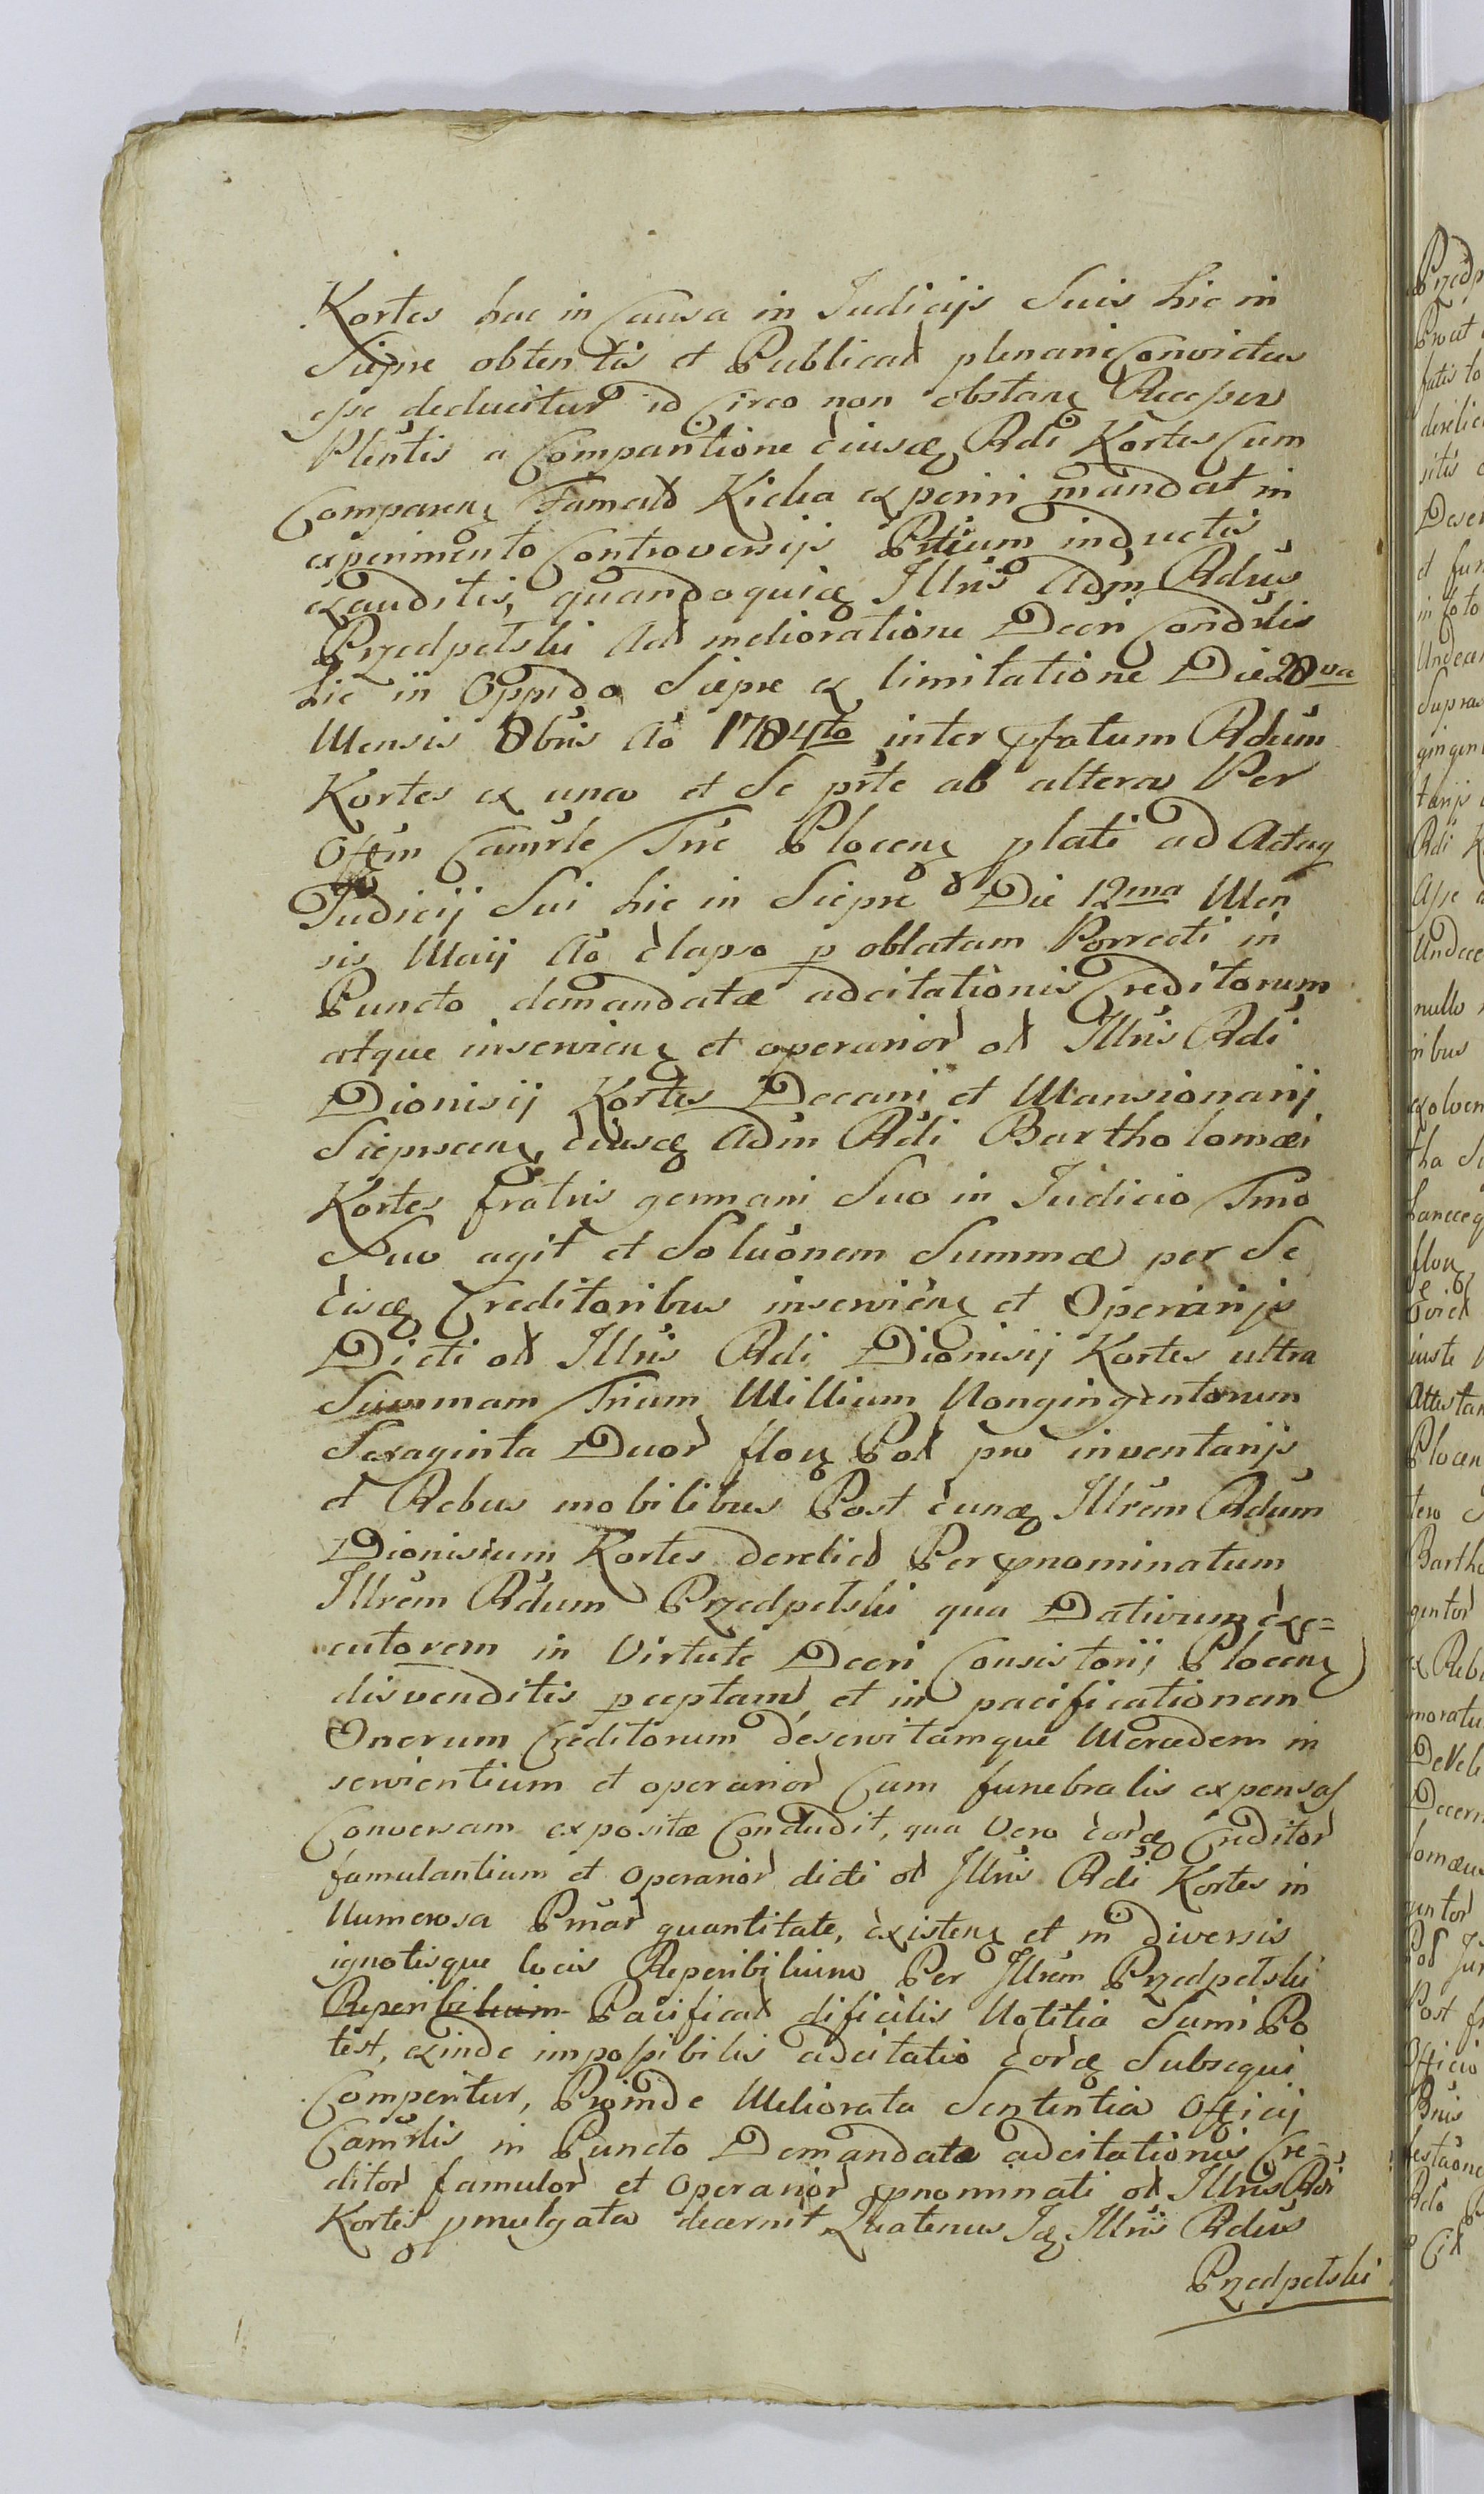 Kortes hac in Causa in Judicijs Suis hic in
Siepre obtentis et Publicat plenarie Convictus
esse deducitur id Circo non obstanz Recessu
Plentis a Compantione eiusdē Rdi Kortes Cum
Comparenz Famato Kicka experiri mandat in
experimento Controversijs Ptium inductis
exauditis, quandoquidē Illris Adm Rdus
Przedpełski Ad melioratione Decri Condrlis
hic in Oppido Siepre ex limitatione Die 28va
Mensis 8bris Ao 1784to inter pfatum Rdum
Kortes ex una et Se prte ab altera Per
Offm Camrle Trre Plocenz plati ad Actuq
Judicij Sui hic in Siepre Die 12ma Men
sis Maij Ao elapso p oblatam Porrecti in
Puncto demandatæ adcitationis Creditorum
atque inservienz et operarior ol Illris Rdi
Dionisij Kortes Decani et Mansionarij
Sieprcenz, eiusdē Adm Rdi Bartholomæi
Kortes fratris germani Suo in Judicio Trmo
Suo agit et Soluonem Summæ per Se
eisdē Creditoribus inservienz et Operarijs
Dicti ol Illris Rdi Dionisij Kortes ultra
Summam Trium Millium Nongingentorum
Sexaginta Duor floz Pol pro inventarijs
et Rebus mobilibus Post eundē Illrem Rdum
Dionisium Kortes derelict Per pnominatum
Illrem Rdum Przedpełski qua Dativum exe=
cutorem in Virtute Decri Consistorij Plocenz
disvenditis pceptam, et in pacificationem
Onerum Creditorum deservitamque Mercedem in
servientium et operarior Cum funebralis expensas
Conversam expositæ Concludit, qua Vero eordē Creditor
famulantium et operarior dicti ol Illris Rdi Kortes in
Numerosa Pnar quantitate, existenz et in diversis
ignotisque locis Reperibilium Per Illrem Przedpełski
Reperibilium Pacificat dificilis Notitia Sumi Po
test, exinde impossibilis adcitatio eordē Subsequi
Comperitur, Proinde Meliorata Sententia Officij
Camrlis in Puncto Demandata adcitationis Cre=
ditor famulor et operarior pnominati ol Illris Rdi
Kortes pmulgata decernit, Quatenus Idē Illris Rdus
Przedpełski